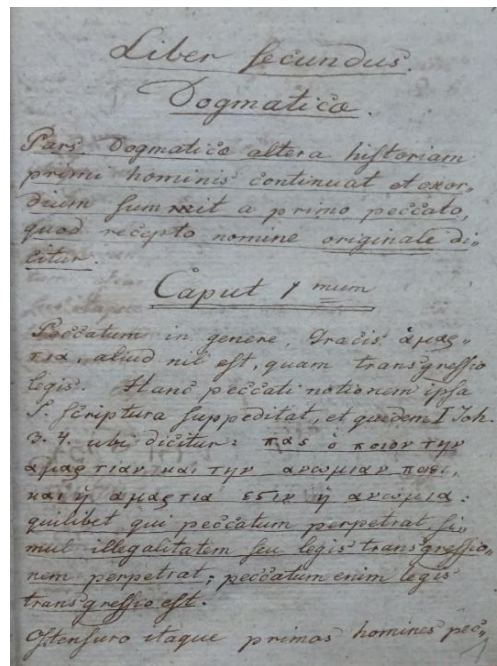 Liber secundus.
Dogmaticæ.
Pars Dogmaticæ altera historiam
primi hominis continuat et exor„
dium summit a primo peccato,
quod recepto nomine originale di„
citur.
Caput 1 mum
Peccatum in genere, Græcis ἁμαρ„
τια, aliud nil est, quam transgressio
legis. Hanc peccati notionem ipsa
S. Scriptura suppeditat, et quidem I Joh.
3. 4. ubi dicitur: πας ὁ ποιον την
αμαρτιαν και την ανωμιαν ποει,
και ἡ αμαρτια εστιν ἡ ανωμια:
quilibet qui peccatum perpetrat, si„
mul illegalitatem seu legis transgressio„
nem perpetrat; peccatum enim legis
transgressio est.
Ostensuro itaque primos homines pec„
1